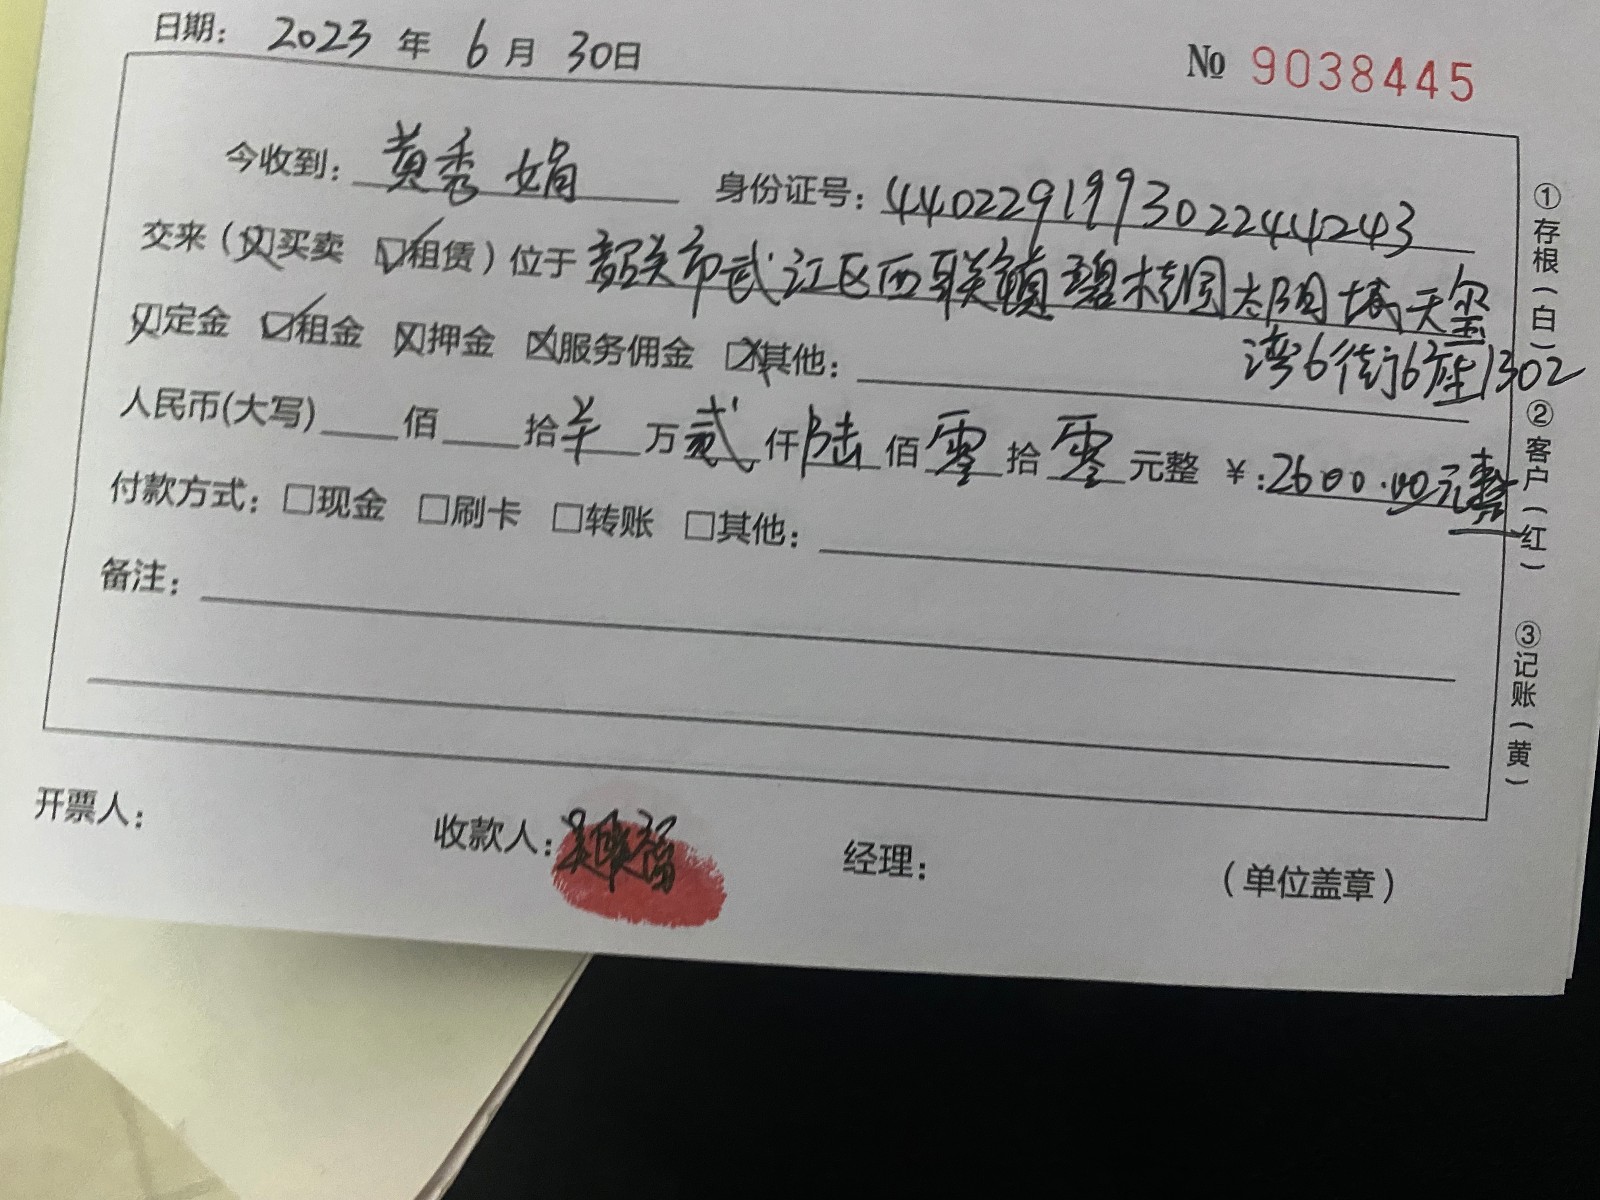 日期： 2023 年 6 月 30日
№ 9038445
今收到： 黄秀娟 身份证号：440229199302244243
交来（☒买卖 ☑租赁）位于 韶关市武江区西联镇碧桂园太阳城天玺
湾6街6座1302
☒定金 ☑租金 ☒押金 ☒服务佣金 ☒其他：
人民币(大写) 佰 拾 万 贰 仟 陆 佰 零 拾 零 元整 ￥:2600.00元整
付款方式：□现金 □刷卡 □转账 □其他：
备注：
开票人： 收款人： 经理： （单位盖章）
①存根（白）
②客户（红）
③记账（黄）